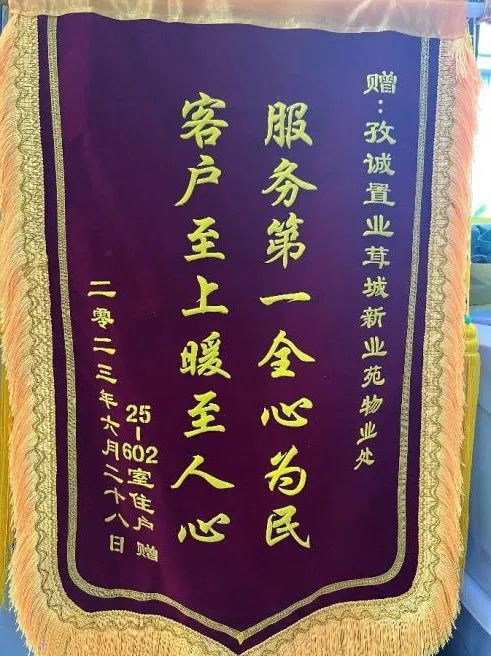 赠：孜诚置业茸城新业苑物业处
服务第一全心为民
客户至上暖至人心
25-602室住户 赠
二零二三年六月二十八日